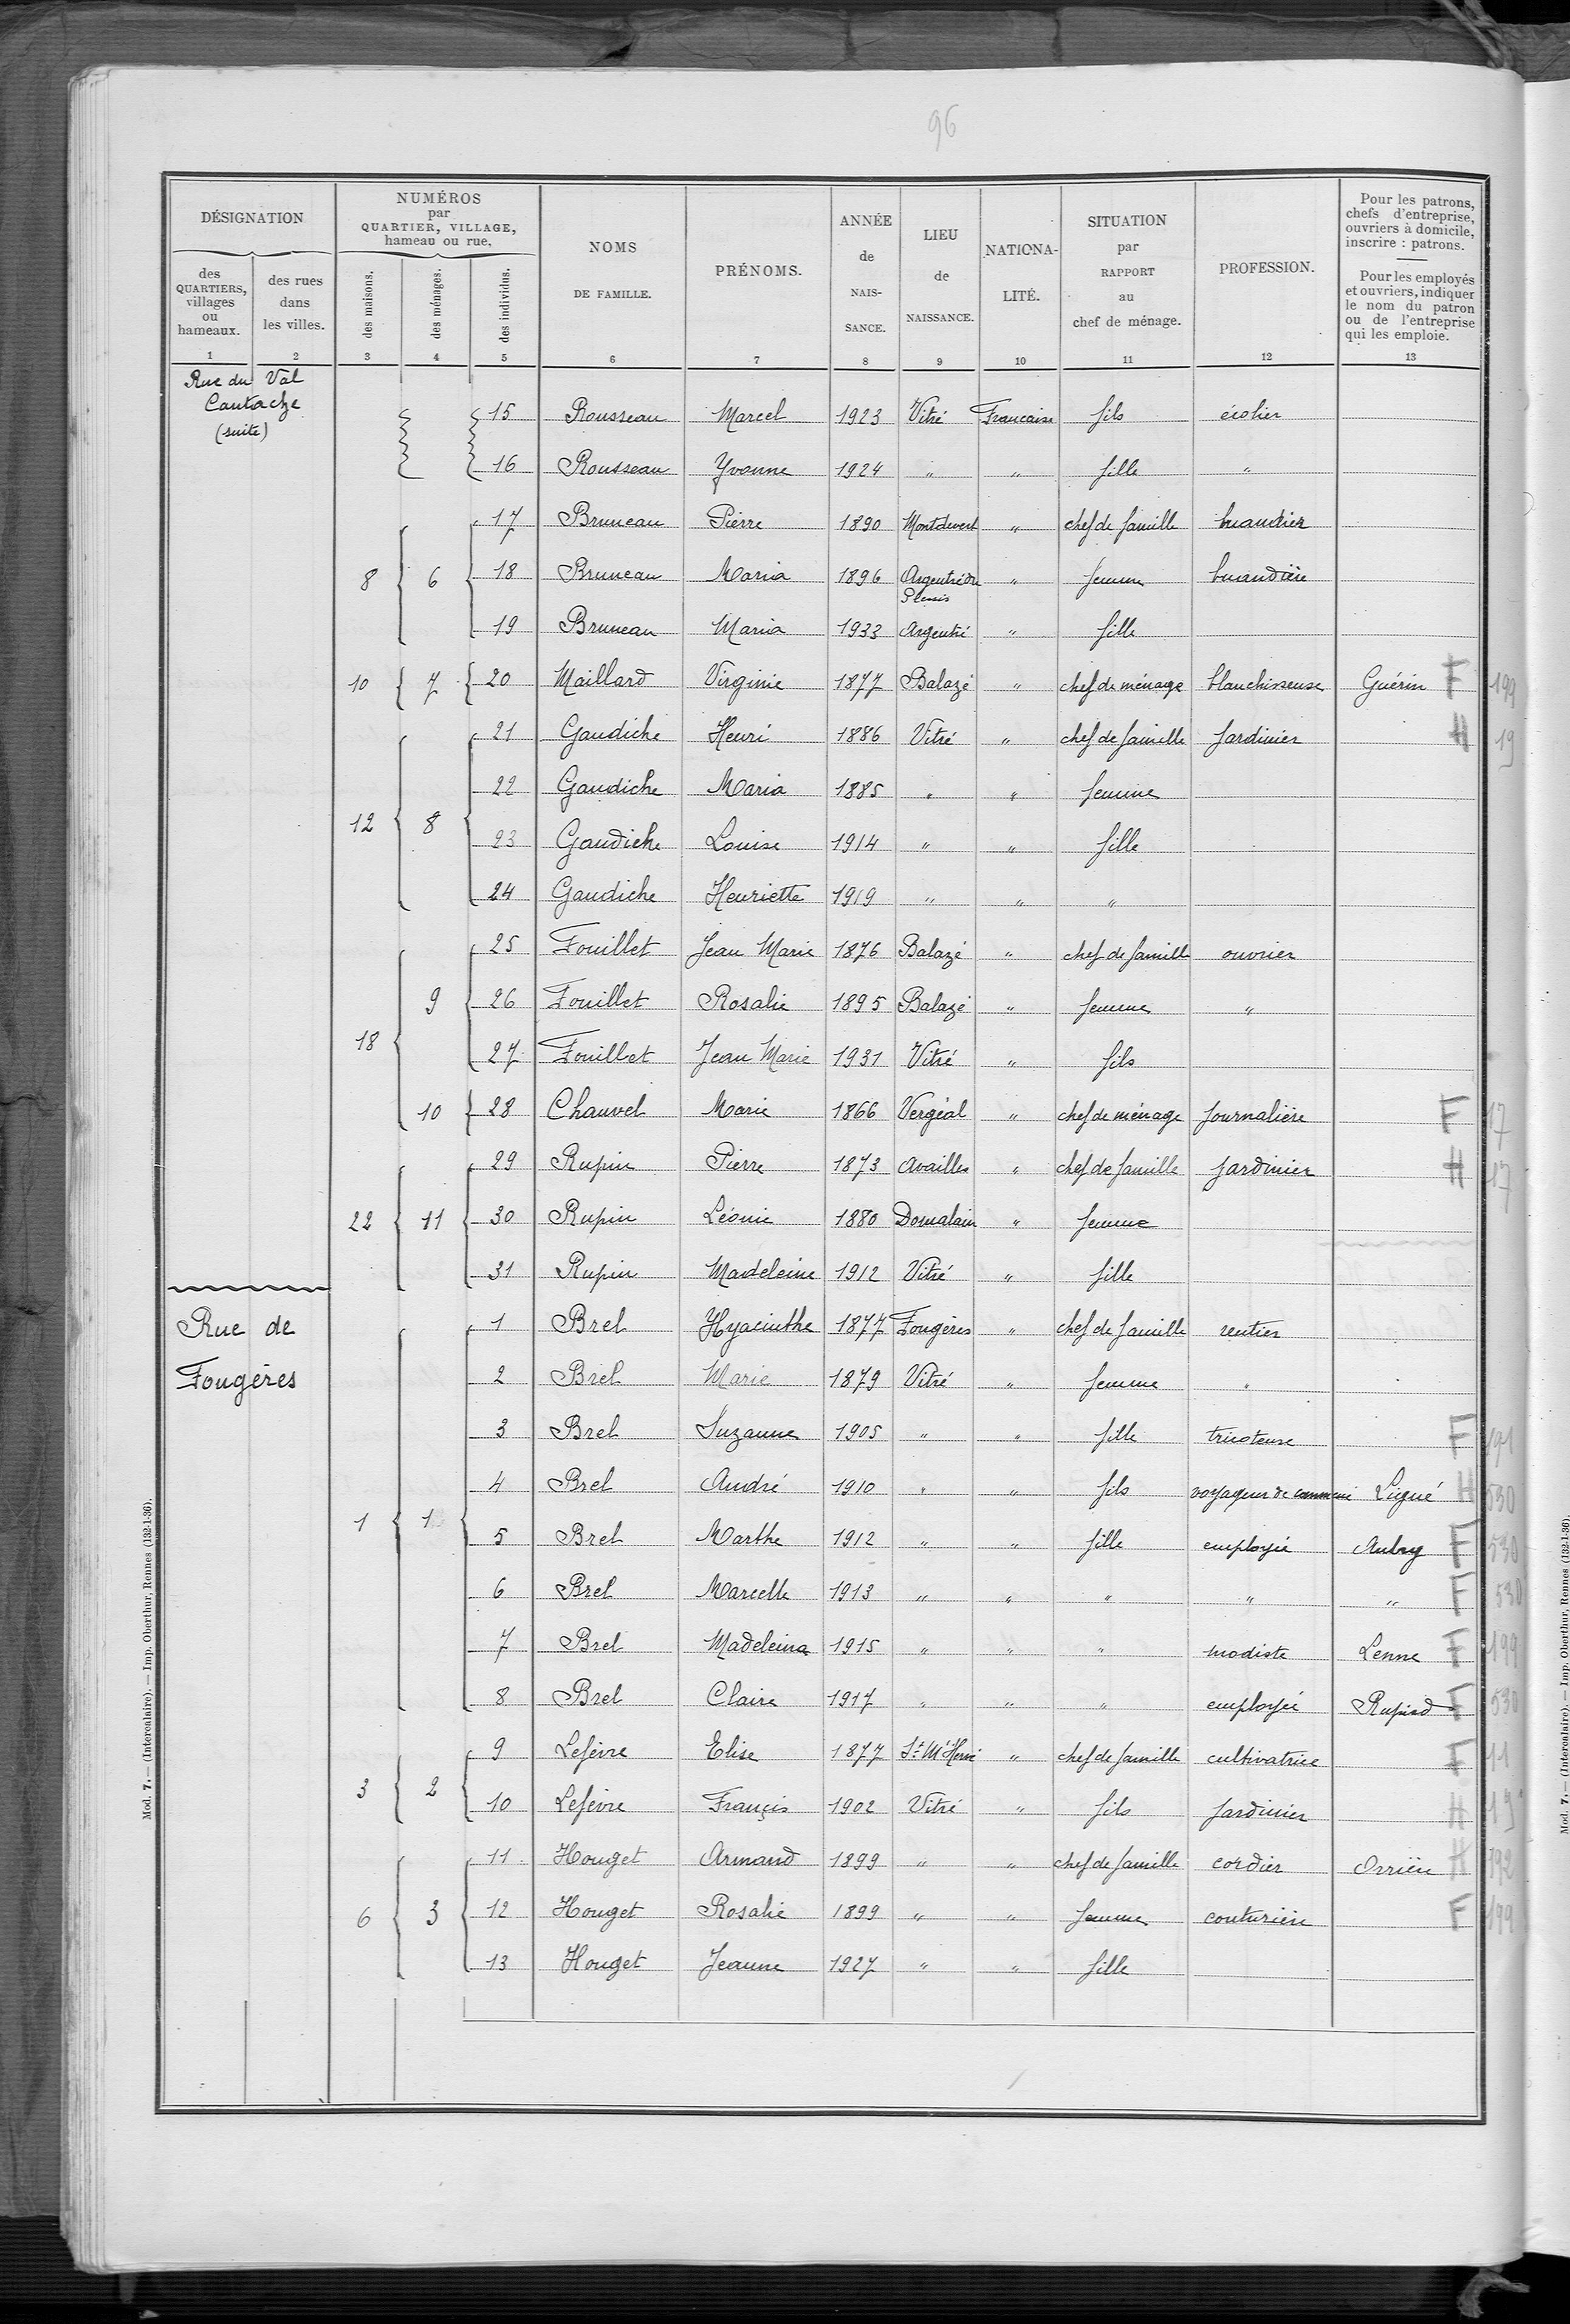 96
DÉSIGNATION
des QUARTIERS, villages ou hameaux.
des rues dans les villes.
NUMÉROS par QUARTIER, VILLAGE, hameau ou rue.
des maisons.
des ménages.
des individus.
NOMS DE FAMILLE.
PRÉNOMS.
ANNÉE de NAIS-SANCE.
LIEU de NAISSANCE.
NATIONA-LITÉ.
SITUATION par RAPPORT au chef de ménage.
PROFESSION.
Pour les patrons, chefs d'entreprise, ouvriers à domicile, inscrire : patrons.
Pour les employés et ouvriers, indiquer le nom du patron ou de l'entreprise qui les emploie.
1 2 3 4 5 6 7 8 9 10 11 12 13
Rue du Val
Cantache
(suite)
15 Rousseau Marcel 1923 Vitré Francaise fils écolier
16 Rousseau Yvonne 1924 " " fille "
17 Bruneau Pierre 1890 Montdevert " chef de famille buandier
8 6 18 Bruneau Maria 1896 Argentré du Plessis " femme buandière
19 Bruneau Maria 1933 Argentré " fille
10 7 20 Maillard Virginie 1877 Balazé " chef de ménage blanchisseuse Guérin F 199
21 Gaudiche Henri 1886 Vitré " chef de famille Jardinier H 19
22 Gaudiche Maria 1885 " " femme
12 8 23 Gaudiche Louise 1914 " " fille
24 Gaudiche Henriette 1919 " " "
25 Fouillet Jean Marie 1876 Balazé " chef de famille ouvrier
9 26 Fouillet Rosalie 1895 Balazé " femme "
18 27 Fouillet Jean Marie 1931 Vitré " fils
10 28 Chauvel Marie 1866 Vergéal " chef de ménage Journalière F 17
29 Rupin Pierre 1873 Availles " chef de famille Jardinier H 17
22 11 30 Rupin Léonie 1880 Domalain " femme
31 Rupin Madeleine 1912 Vitré " fille
Rue de
Fougères
1 Brel Hyacinthe 1877 Fougères " chef de famille rentier
2 Brel Marie 1879 Vitré " femme "
3 Brel Suzanne 1905 " " fille tricoteuse F 191
4 Brel André 1910 " " fils voyageur de commerce Ligué H 530
1 1 5 Brel Marthe 1912 " " fille employée Aubry F 530
6 Brel Marcelle 1913 " " " " " F 530
7 Brel Madeleine 1915 " " " modiste Lenne F 199
8 Brel Claire 1917 " " " employée F 530
9 Lefèvre Elise 1877 St M'Hervé " chef de famille cultivatrice F 11
3 2 10 Lefèvre Francis 1902 Vitré " fils Jardinier H
11 Houget Armand 1899 " " chef de famille cordier Orrière H 192
6 3 12 Houget Rosalie 1899 " " femme couturière F 199
13 Houget Jeanne 1927 " " fille
Mod. 7. — (Intercalaire). — Imp. Oberthur, Rennes (132-1-36).
Mod. 7. — (Intercalaire). — Imp. Oberthur, Rennes (132-1-36).